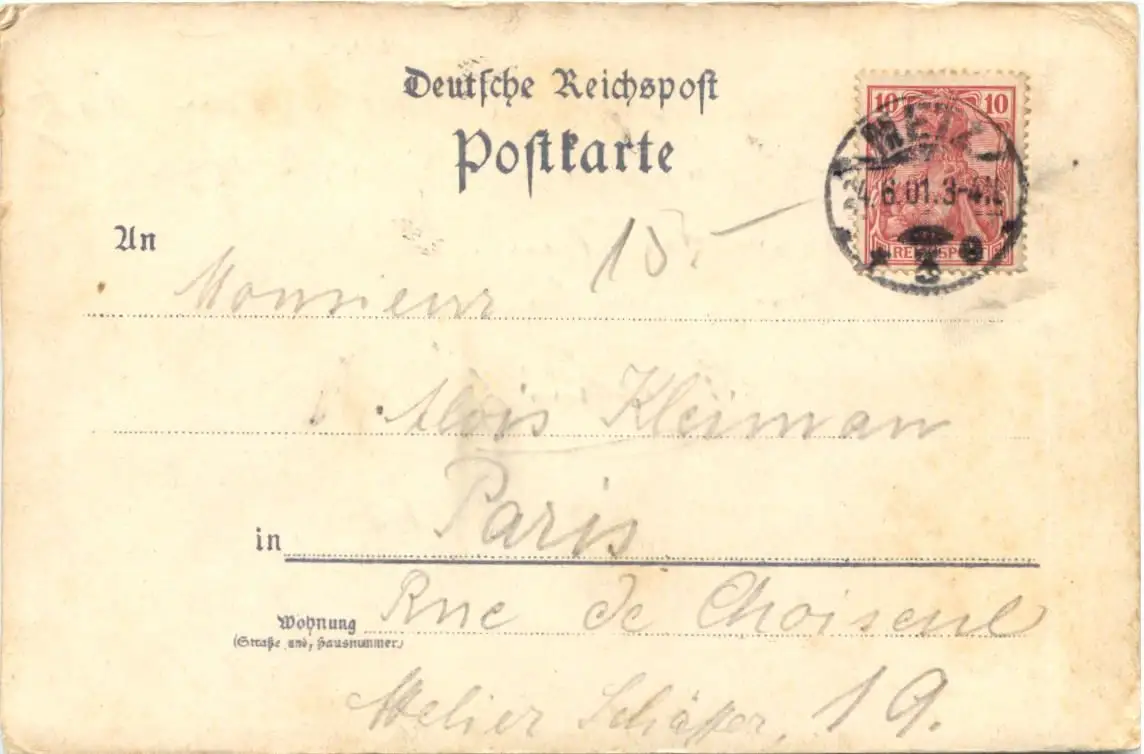 Deutsche Reichspost
Postkarte
10 10
METZ
4.6.01.3-4N.
REICHSPOST
3 9
An
15.-
Monsieur
Alois Kleiman
Paris
in
Rue de Choiseul
Wohnung
(Straße und Hausnummer)
Atelier Schäffer, 19.